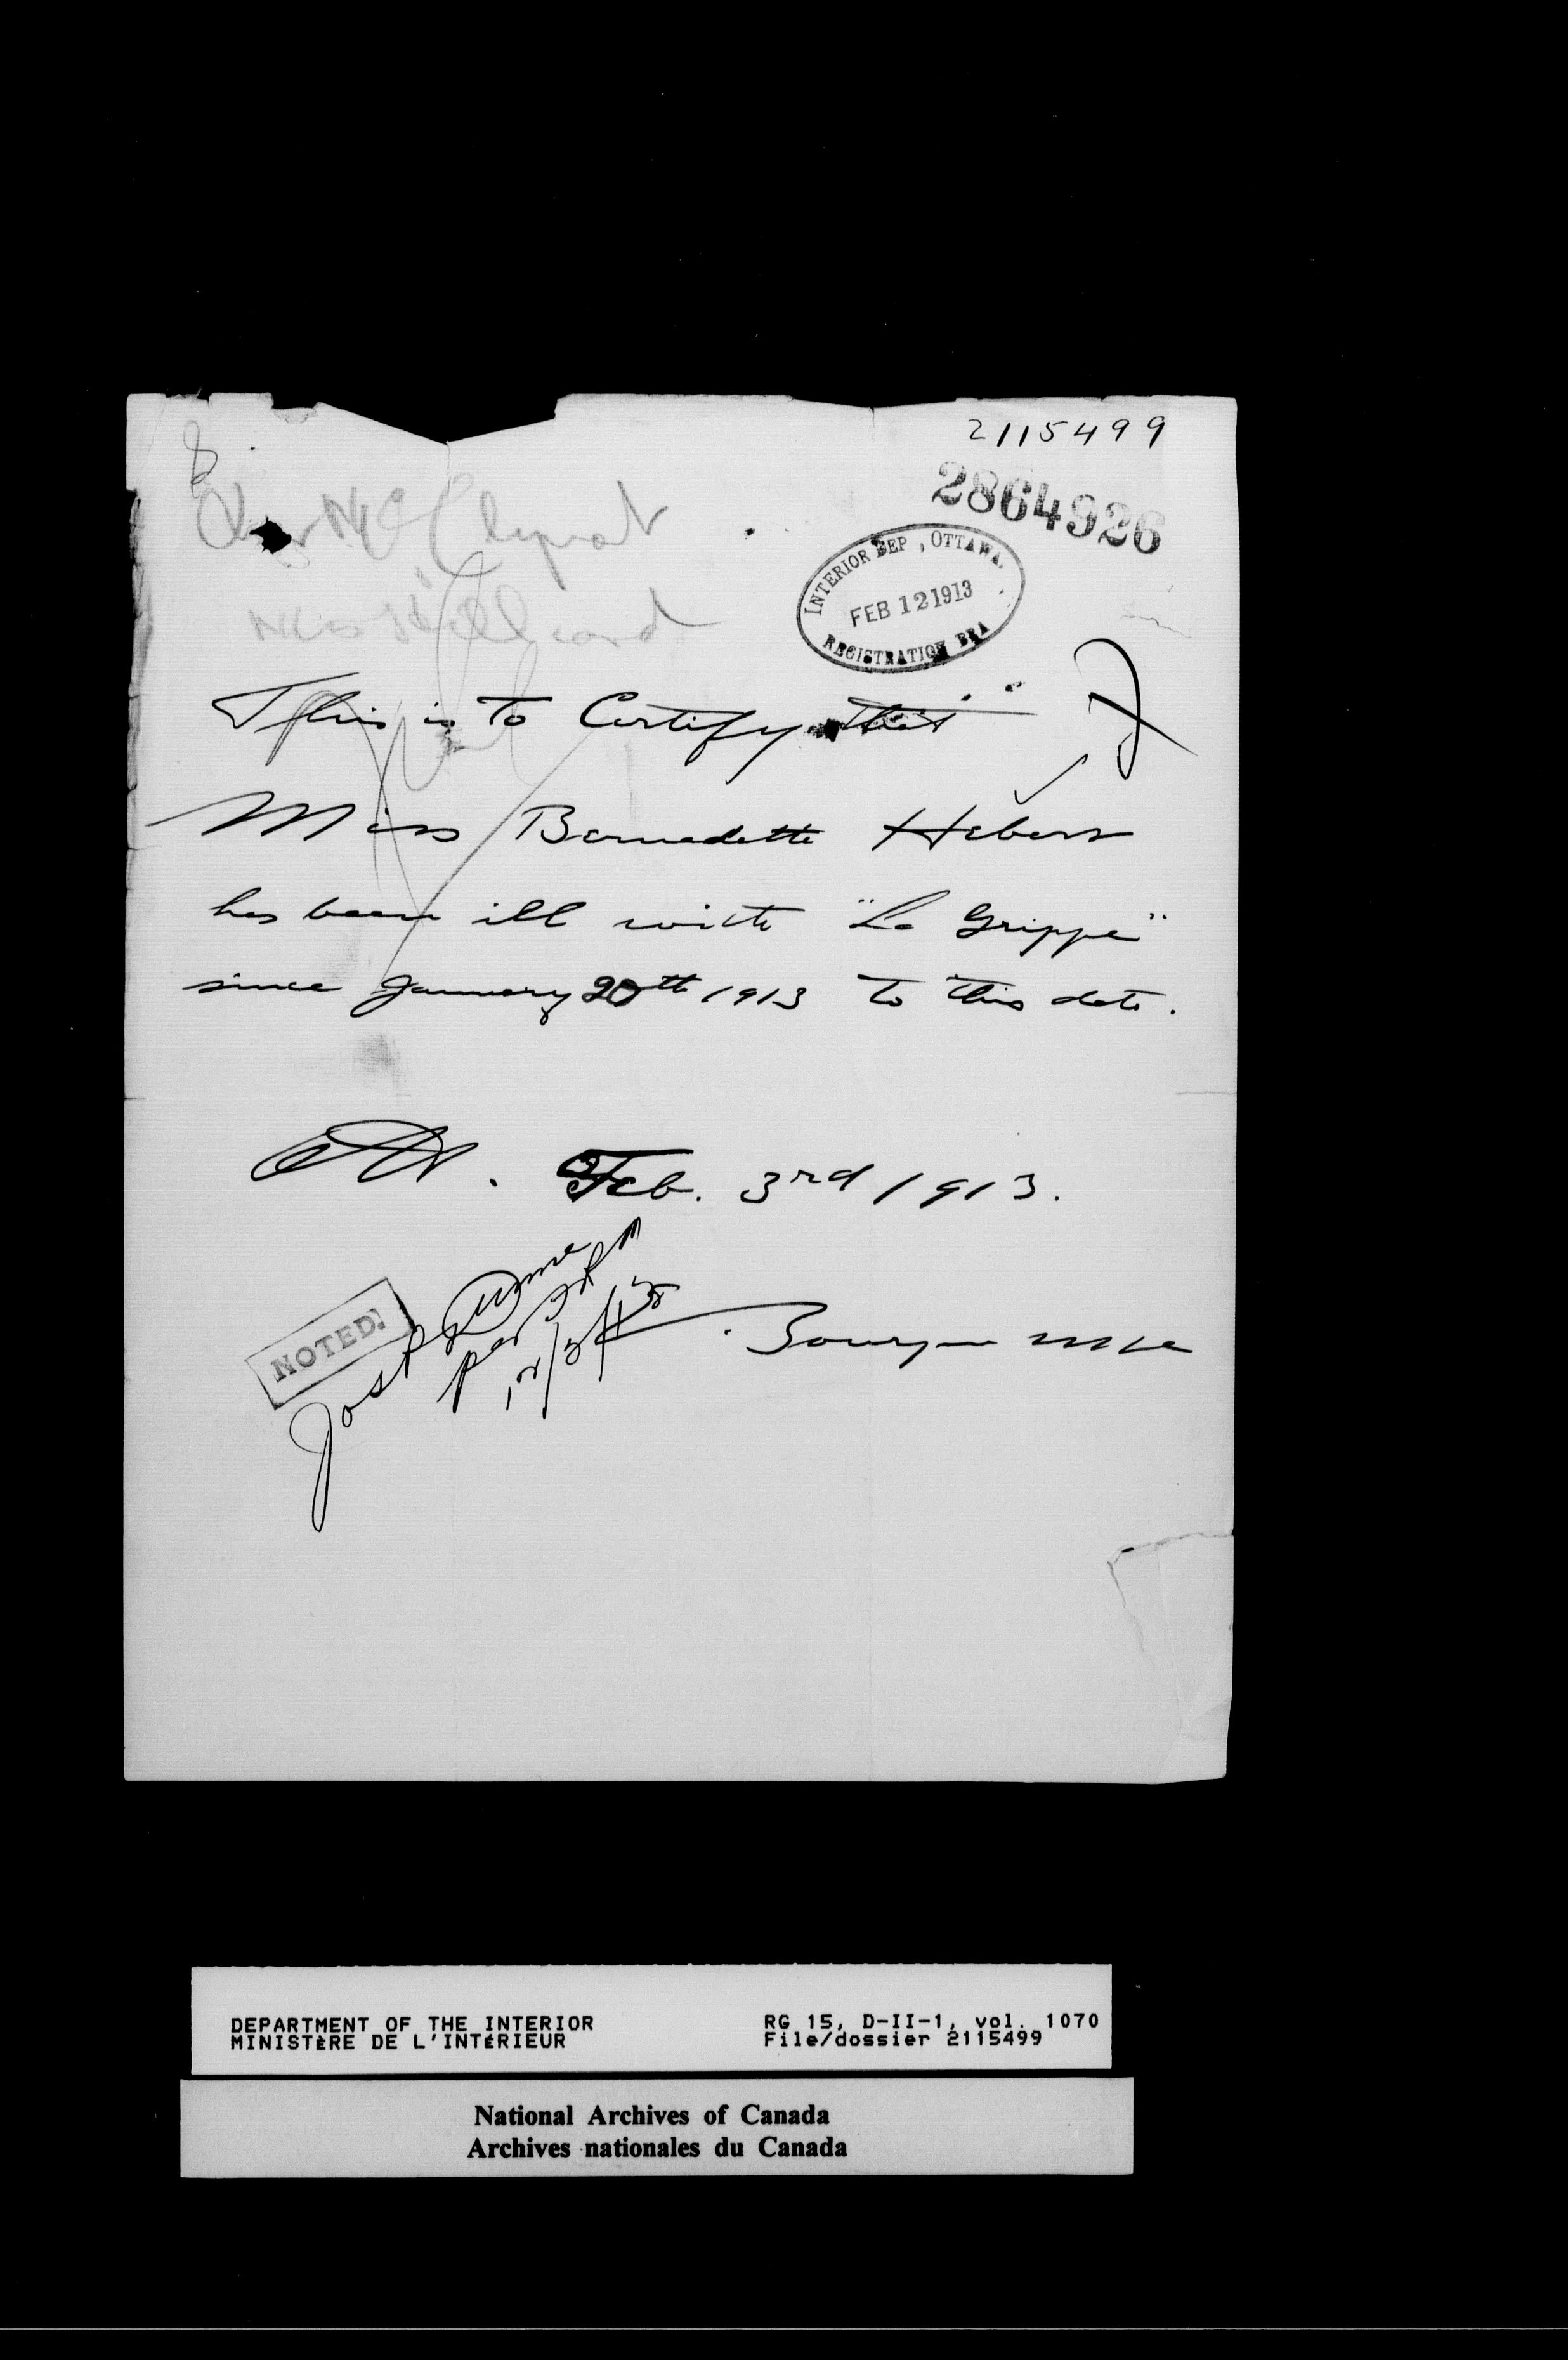 2115499
2864926
INTERIOR DEP, OTTAWA.
FEB 12 1913
REGISTRATION BRA
This is to Certify that
Miss Bernadette Hebert
has been ill with "La Grippe"
since January 20th 1913 to this date.
Ott. Feb. 3rd 1913.
NOTED.
per
DEPARTMENT OF THE INTERIOR
MINISTÈRE DE L'INTÉRIEUR
RG 15, D-II-1, vol. 1070
File/dossier 2115499
National Archives of Canada
Archives nationales du Canada